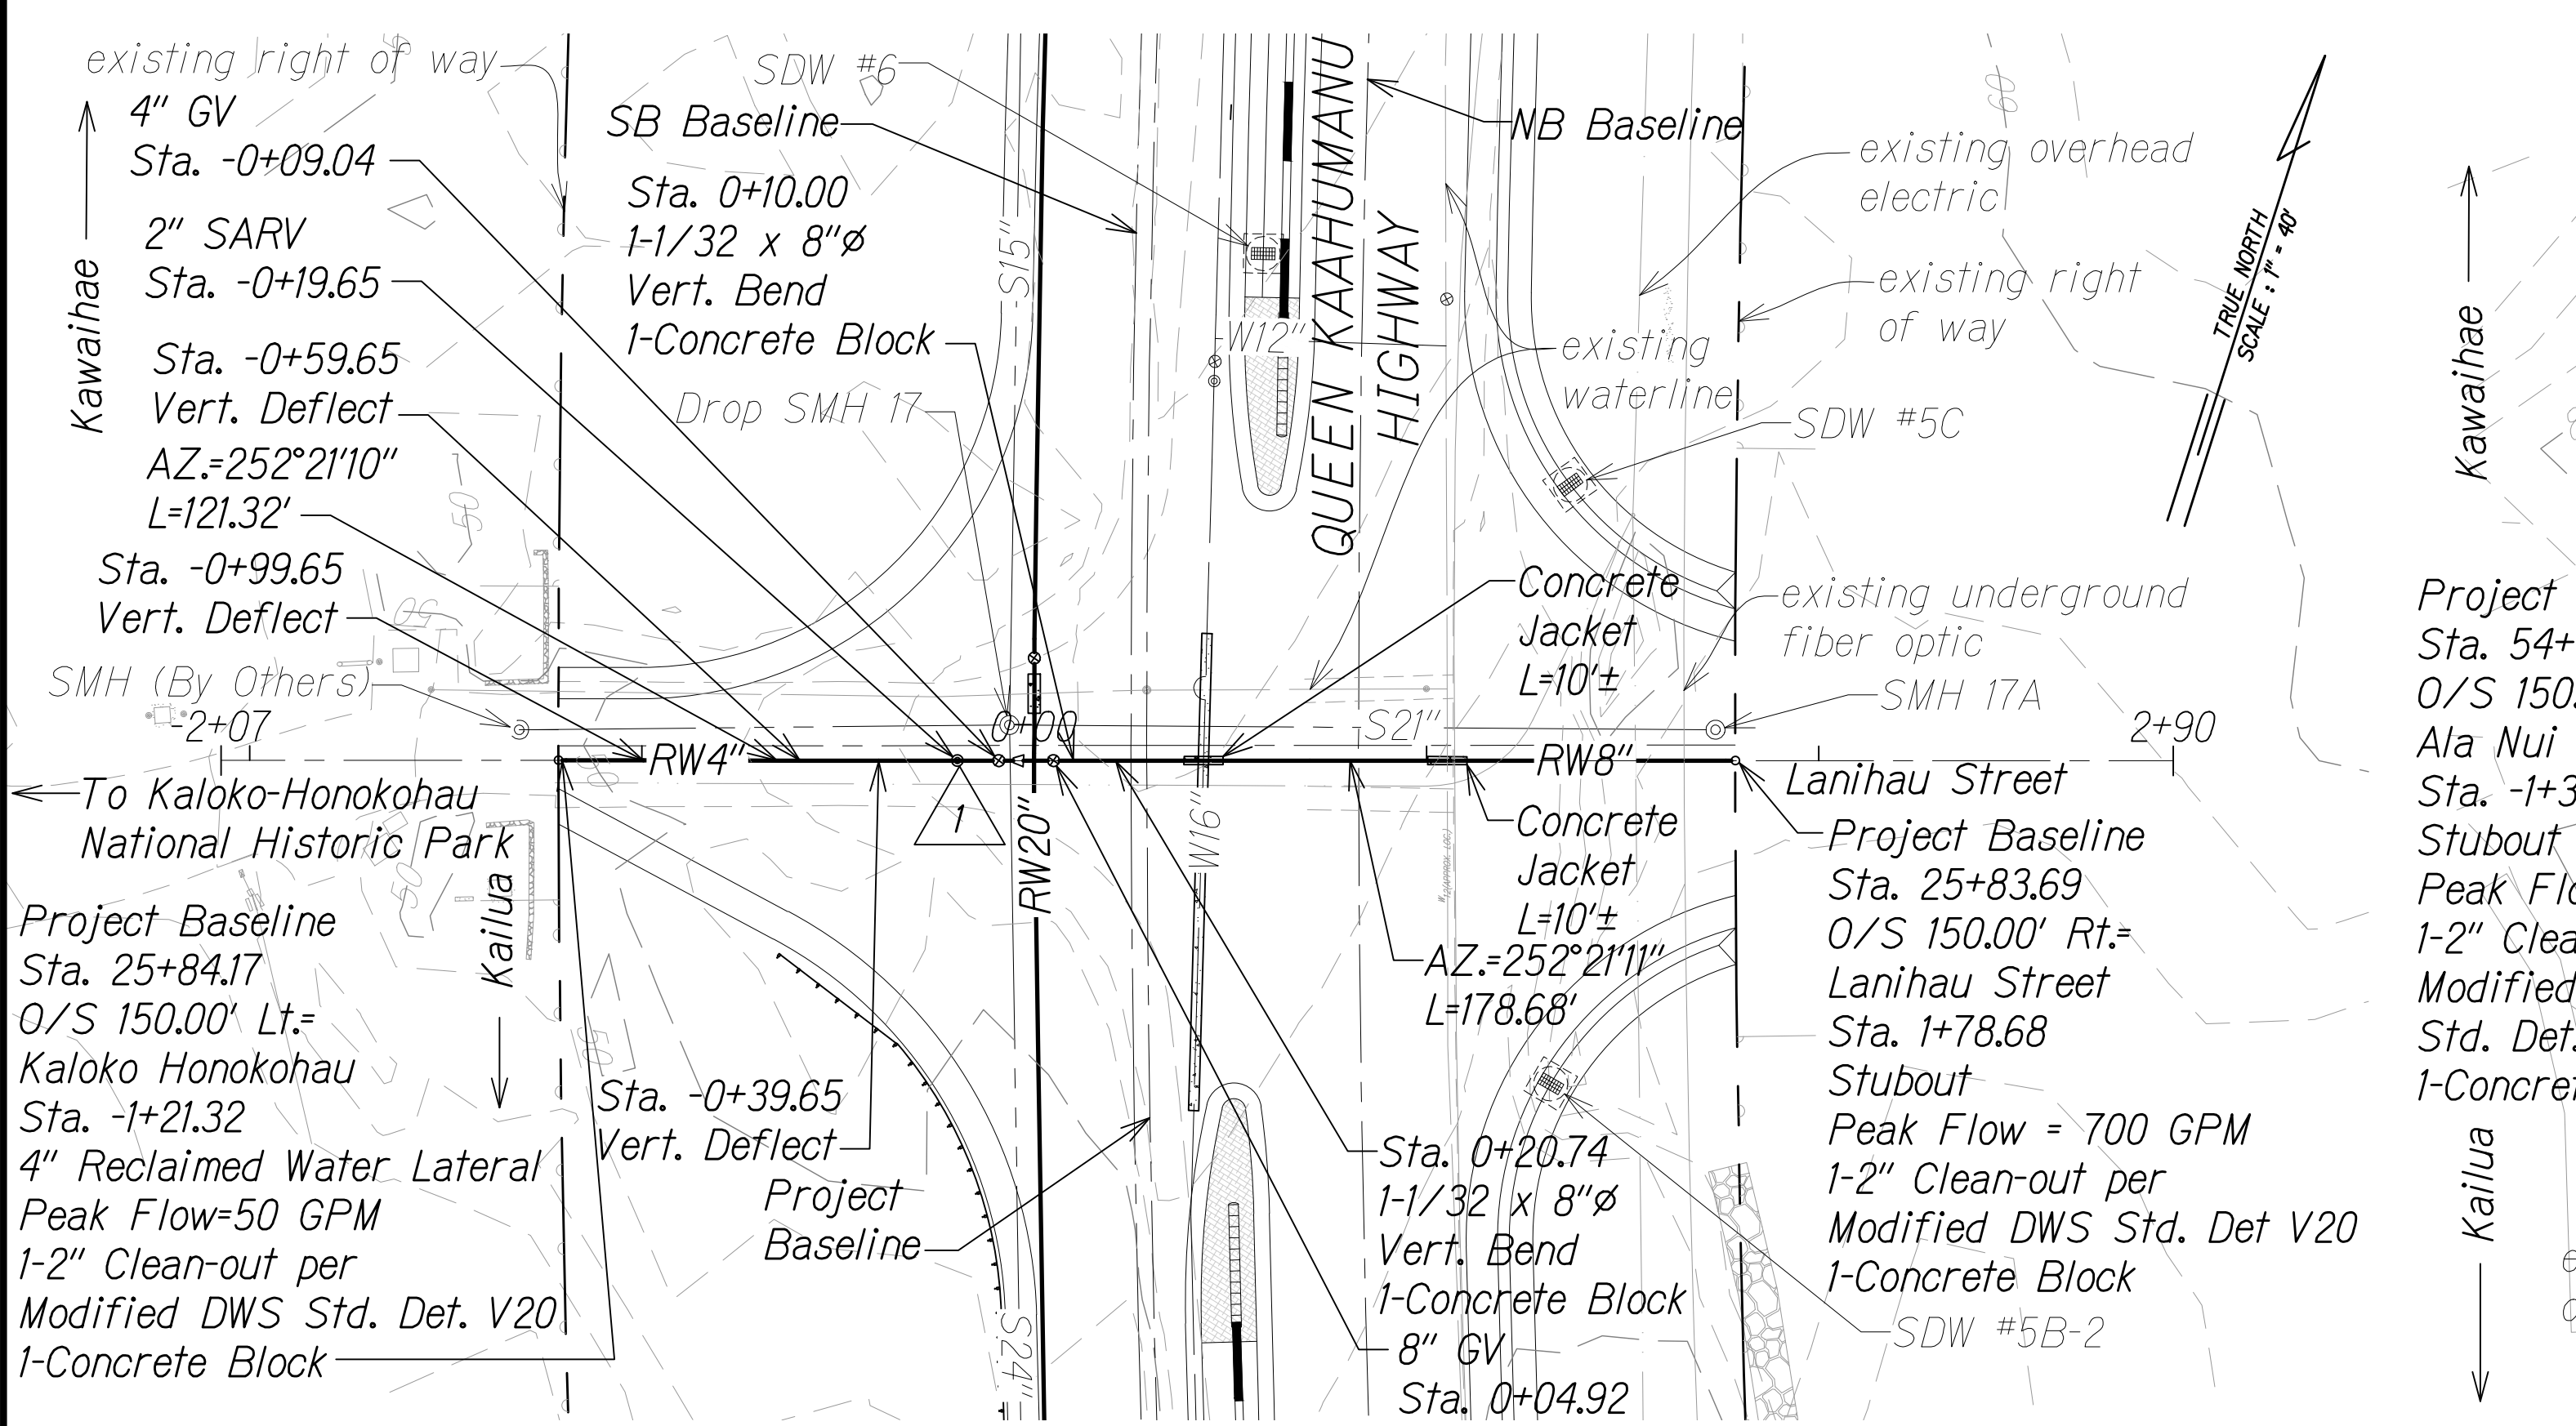 existing right of way
4" GV
Sta. -0+09.04
2" SARV
Sta. -0+19.65
Sta. -0+59.65
Vert. Deflect
AZ.=252°21'10"
L=121.32'
Sta. -0+99.65
Vert. Deflect
SMH (By Others)
-2+07
Kawaihae
To Kaloko-Honokohau
National Historic Park
Project Baseline
Sta. 25+84.17
O/S 150.00' Lt.=
Kaloko Honokohau
Sta. -1+21.32
4" Reclaimed Water Lateral
Peak Flow=50 GPM
1-2" Clean-out per
Modified DWS Std. Det. V20
1-Concrete Block
Kailua
50
50
50
60
60
SDW #6
SB Baseline
Sta. 0+10.00
1-1/32 x 8"ø
Vert. Bend
1-Concrete Block
Drop SMH 17
S15"
0+00
RW4"
1
RW20"
Sta. -0+39.65
Vert. Deflect
Project
Baseline
S24"
W12"
W16"
QUEEN KAAHUMANU
HIGHWAY
NB Baseline
existing overhead
electric
60
existing right
of way
existing
waterline
SDW #5C
Concrete
Jacket
L=10'±
existing underground
fiber optic
SMH 17A
S21"
2+90
RW8"
Lanihau Street
Concrete
Jacket
L=10'±
AZ.=252°21'11"
L=178.68'
Project Baseline
Sta. 25+83.69
O/S 150.00' Rt.=
Lanihau Street
Sta. 1+78.68
Stubout
Peak Flow = 700 GPM
1-2" Clean-out per
Modified DWS Std. Det V20
1-Concrete Block
SDW #5B-2
Sta. 0+20.74
1-1/32 x 8"ø
Vert. Bend
1-Concrete Block
8" GV
Sta. 0+04.92
TRUE NORTH
SCALE : 1" = 40'
Kawaihae
Project
Sta. 54+
O/S 150.
Ala Nui
Sta. -1+3
Stubout
Peak Flo
1-2" Clea
Modified
Std. Det.
1-Concret
Kailua